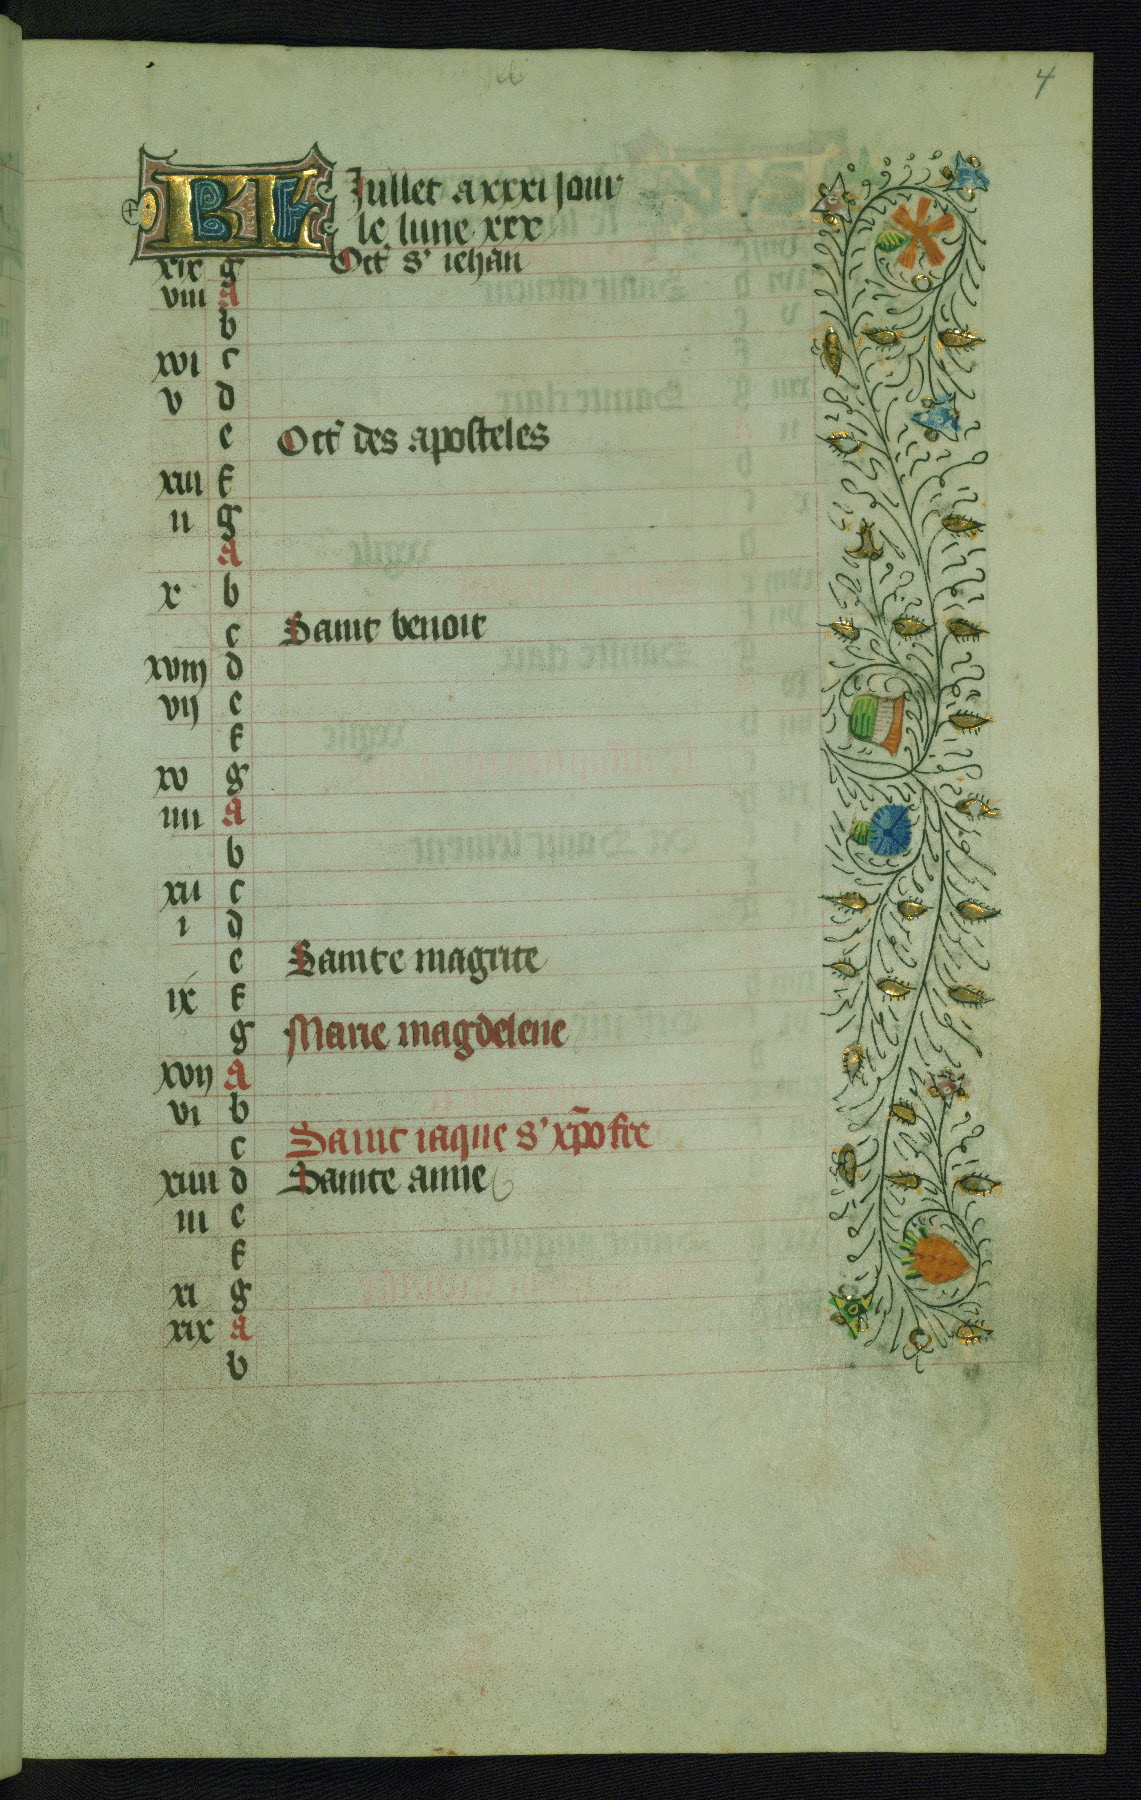 4
KL Jullet a xxxi jour
le lune xxx
xix g Oct' s' iehan
viii A
b
xvi c
v d
e Oct' des aposteles
xiii f
ii g
A
x b
c Saint benoit
xviij d
vij e
f
xv g
iiii A
b
xii c
i d
e Sainte magrite
ix f
g Marie magdelene
xvij A
vi b
c Saint iaque s' xp̄ofre
xiiii d Sainte anne
iii e
f
xi g
xix A
b